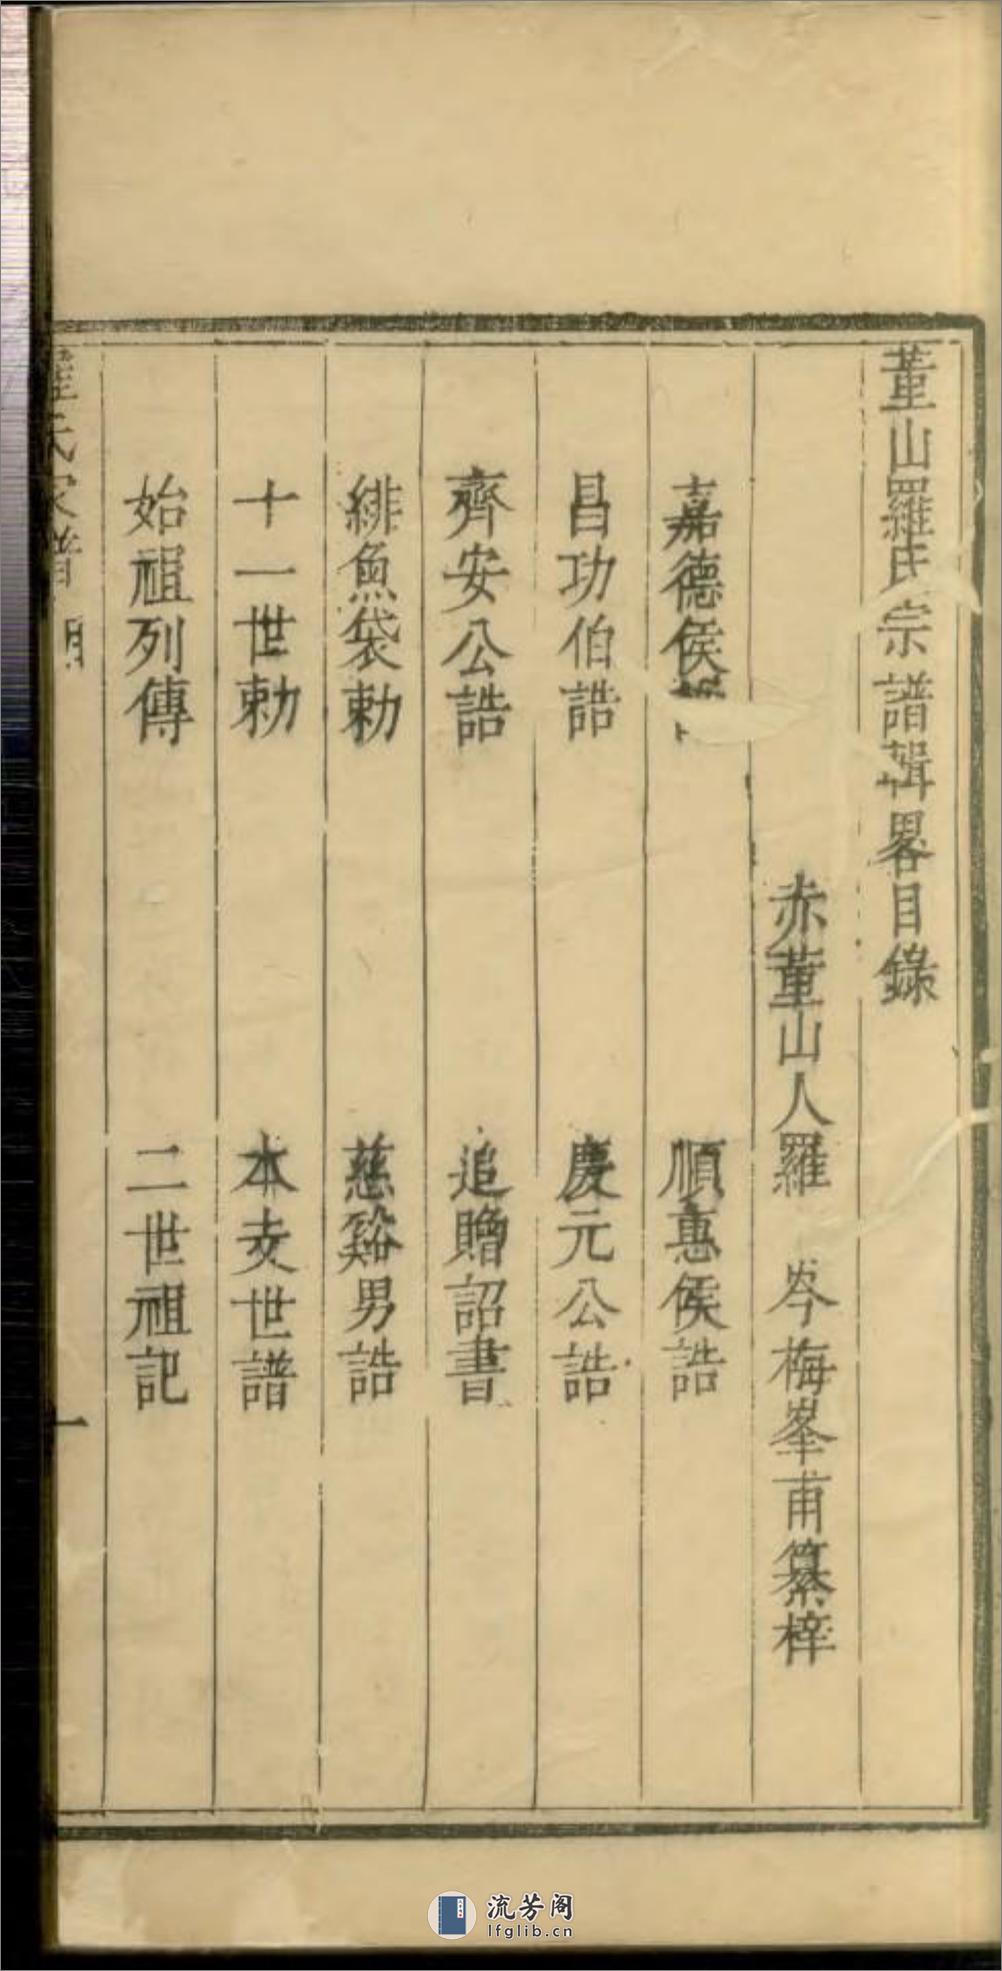 董山羅氏宗譜輯畧目錄
赤董山人羅 岑梅峯甫纂梓
嘉德侯 順惠侯誥
昌功伯誥 慶元公誥
齊安公誥 追贈詔書
緋魚袋勅 慈谿男誥
十一世勅 本支世譜
始祖列傳 二世祖記
氏家譜 一
流芳阁
lfglib.cn